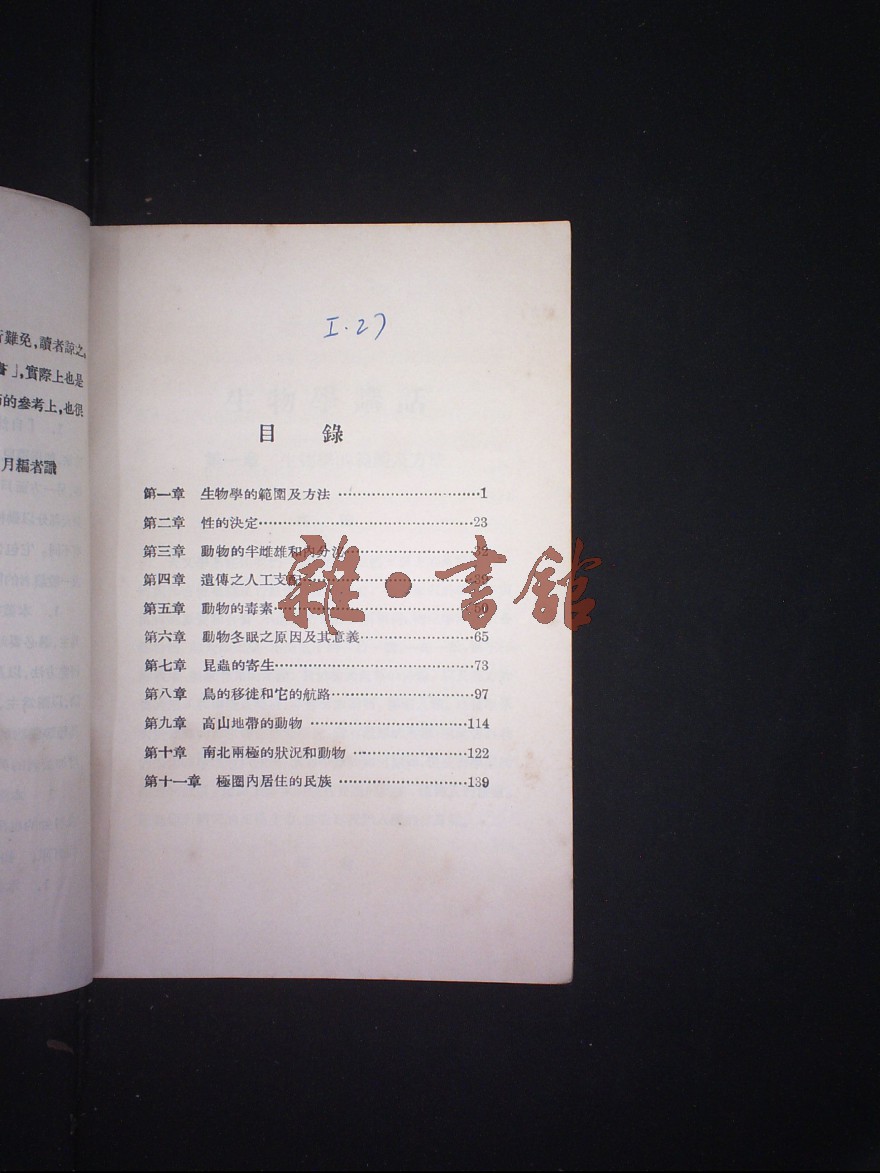 行難免,讀者諒之。
書」,實際上也是
的參考上,也很
月編者識
I.27
目 錄
第一章 生物學的範圍及方法 …………………………1
第二章 性的決定……………………………………23
第三章 動物的半雌雄和內分泌……………………32
第四章 遺傳之人工支配……………………………39
第五章 動物的毒素…………………………………50
第六章 動物冬眠之原因及其意義…………………65
第七章 昆蟲的寄生…………………………………73
第八章 鳥的移徙和它的航路………………………97
第九章 高山地帶的動物 …………………………114
第十章 南北兩極的狀況和動物 …………………122
第十一章 極圈內居住的民族 ……………………139
雜·書館